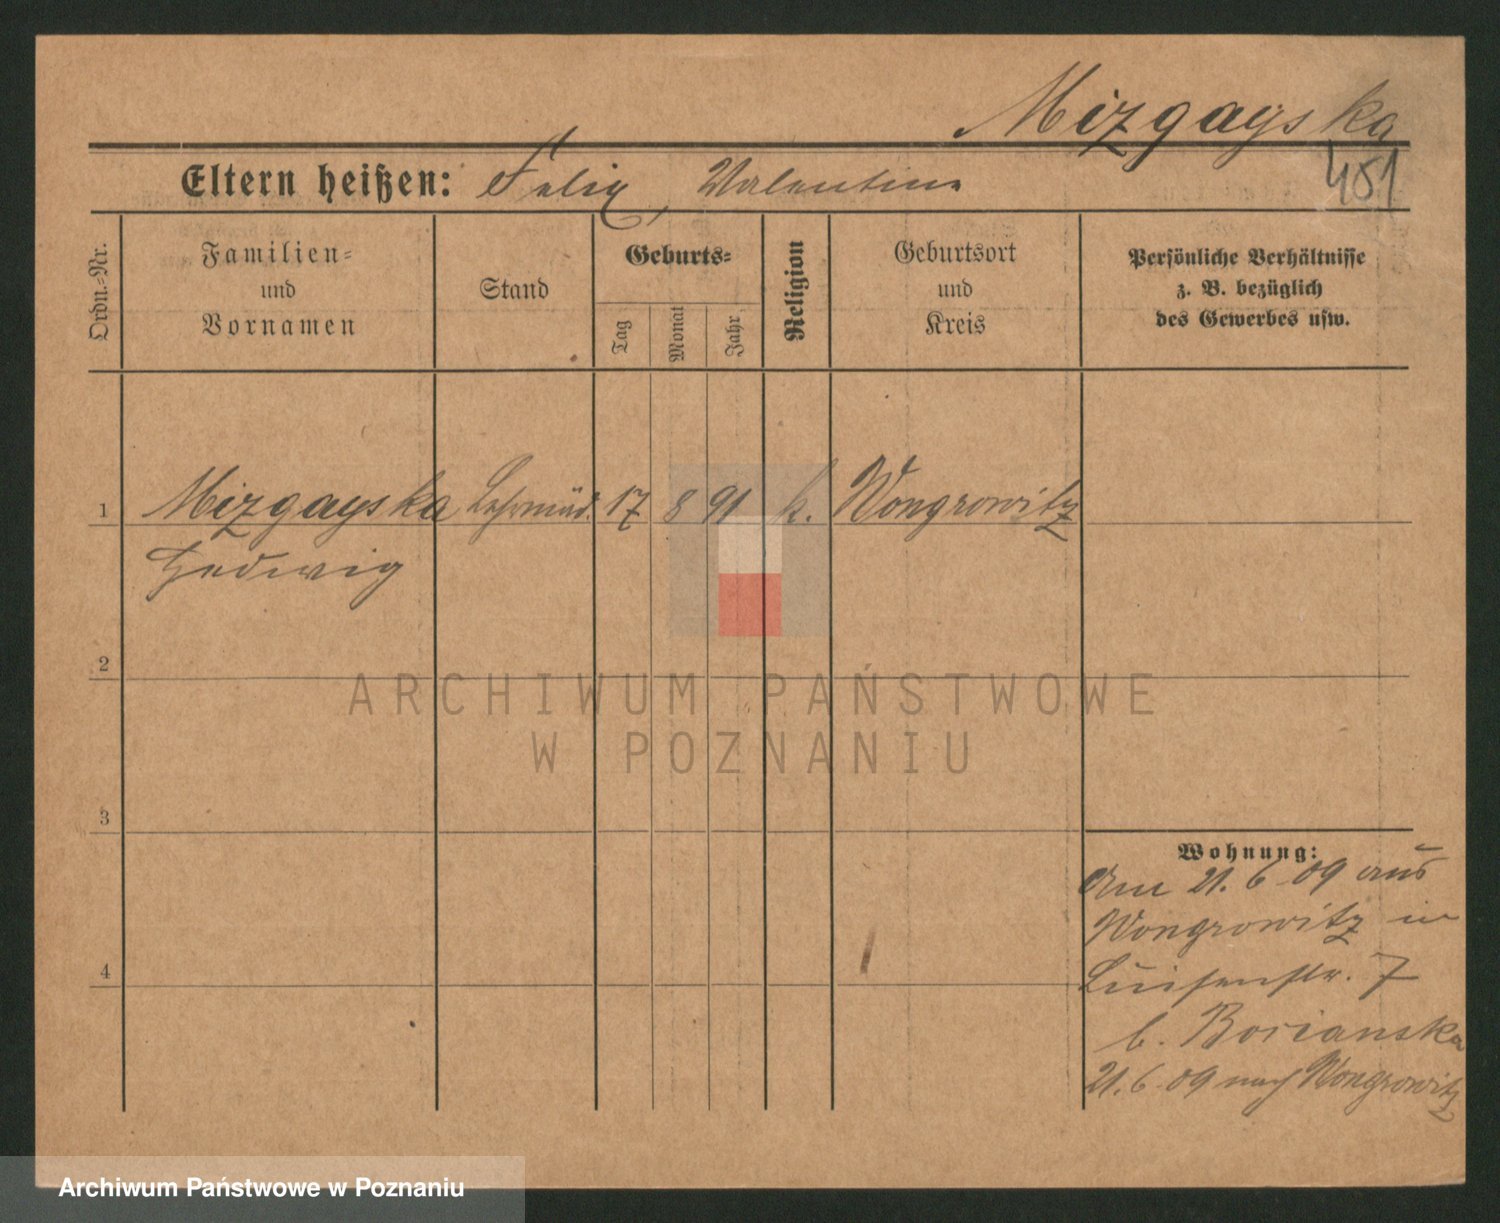 Mizgayska
451
Eltern heißen: Felix, Valentine
Ordn.-Nr.
Familien-
und
Vornamen
Stand
Geburts-
Tag
Monat
Jahr
Religion
Geburtsort
und
Kreis
Persönliche Verhältnisse
z. B. bezüglich
des Gewerbes usw.
1 Mizgayska Lehrmäd. 17 8 91 k. Wongrowitz
Hedwig
2
ARCHIWUM PAŃSTWOWE
W POZNANIU
3
Wohnung:
Am 21. 6 09 aus
Wongrowitz in
Luisenstr. 7
4
b. Borianska
21. 6 09 nach Wongrowitz
Archiwum Państwowe w Poznaniu